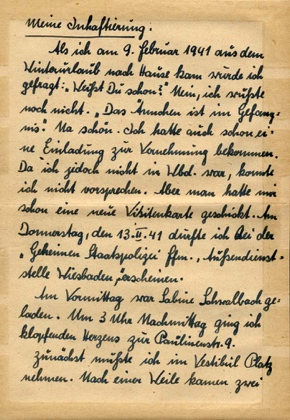 Meine Inhaftierung.
Als ich am 9. Februar 1941 aus dem
Winterurlaub nach Hause kam wurde ich
gefragt: „Weißt Du schon?" Nein, ich wüßte
noch nicht. „Das Ännchen ist im Gefäng-
nis." Na schön. Ich hatte auch schon ei-
ne Einladung zur Vernehmung bekommen.
Da ich jedoch nicht in Wbd. war, konnte
ich nicht vorsprechen. Aber man hatte mir
schon eine neue Visitenkarte geschickt. Am
Donnerstag, den 13.II.41 durfte ich bei der
„Geheimen Staatspolizei Ffm., Außendienst-
stelle Wiesbaden," erscheinen.
Am Vormittag war Sabine Schwalbach ge-
laden. Um 3 Uhr Nachmittag ging ich
klopfenden Herzens zur Paulinenstr. 9.
Zunächst mußte ich im Vestibül Platz
nehmen. Nach einer Weile kamen zwei